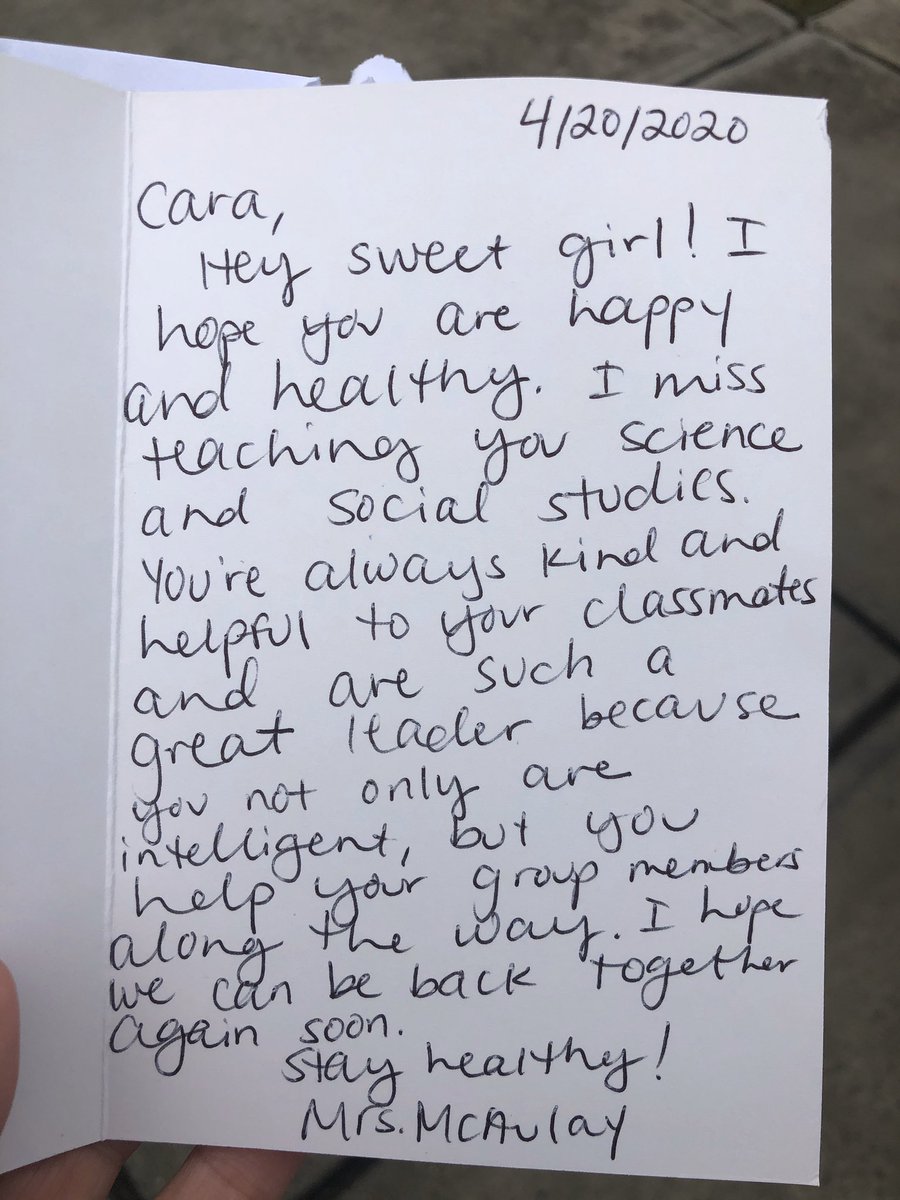 4/20/2020
Cara,
Hey sweet girl! I
hope you are happy
and healthy. I miss
teaching you science
and social studies.
You're always kind and
helpful to your classmates
and are such a
great leader because
you not only are
intelligent, but you
help your group members
along the way. I hope
we can be back together
again soon.
Stay healthy!
Mrs. McAulay